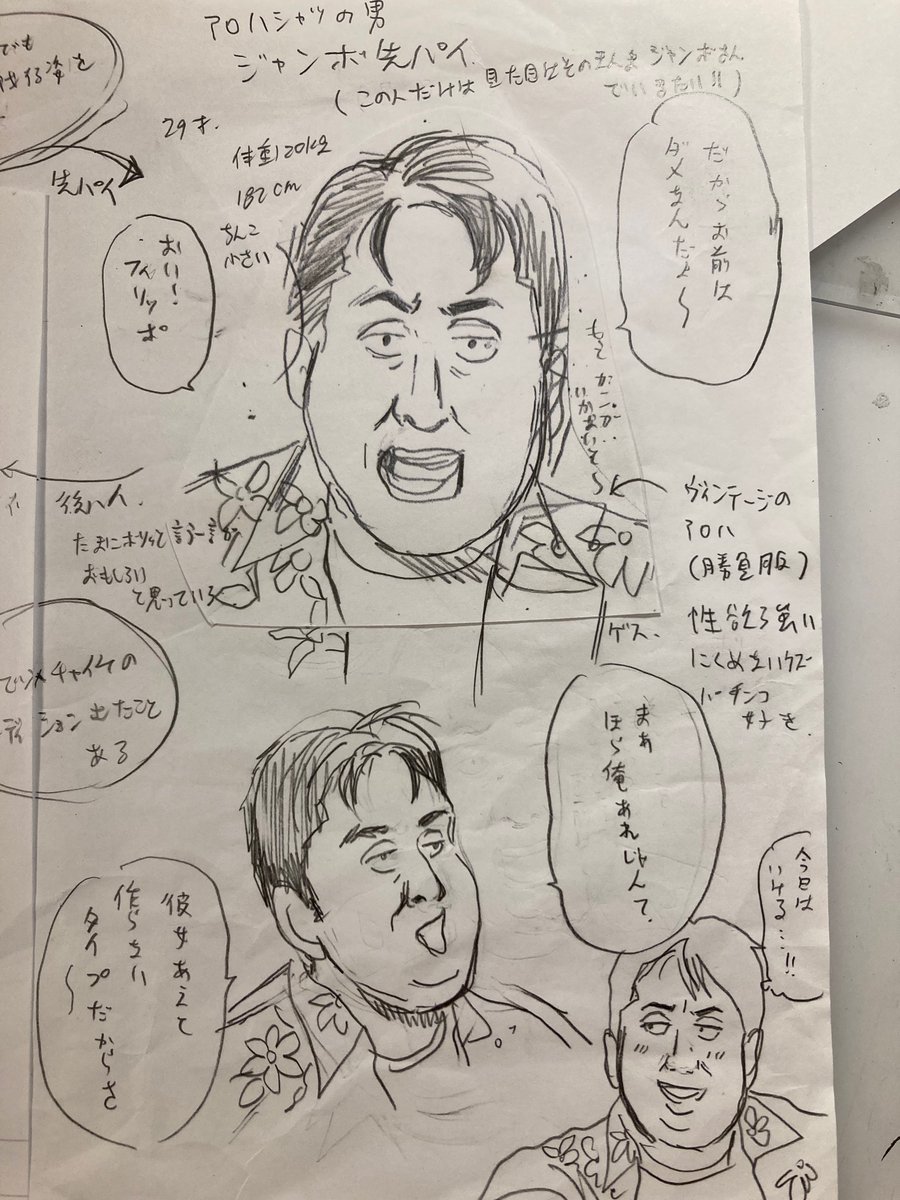 アロハシャツの男
ジャンボ先パイ.
(この人だけは見た目はそのまんまジャンボさん
でいきたい!!)
でも
姿を
29才.
体重120kg
182cm
ちんこ
小さい
先パイ
おい!
フィリッポ
だからお前は
ダメなんだよ〜
後ハイ.
たまにボソッて言う一言が
おもしろい
て思っている
ヴィンテージの
アロハ
(勝負服)
ゲス.
性欲強い
にくめないクズ
パチンコ
好き.
チャイケの
ション出たこと
ある
まぁ
ほら俺あれじゃんて.
彼女あえて
作らない
タイプだからさ
〜
今日は
いける…!!